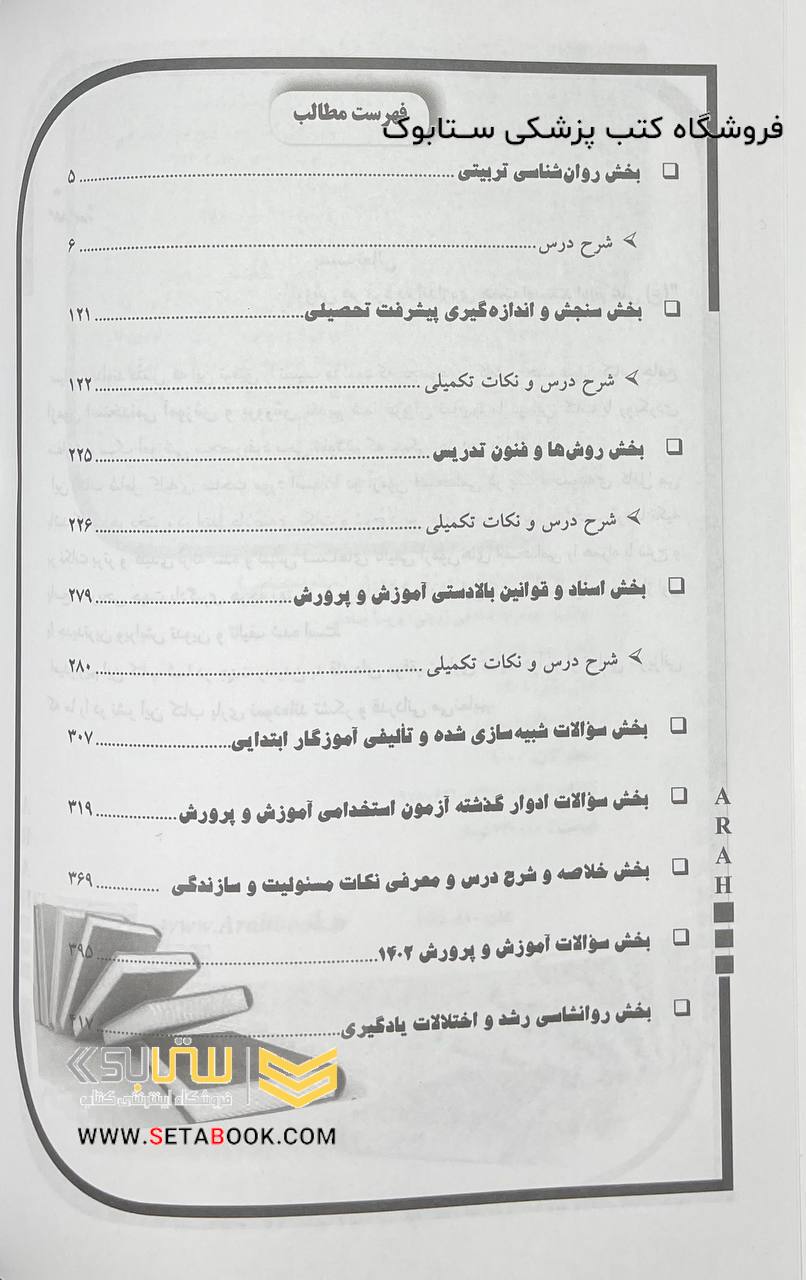 فهرست مطالب
فروشگاه کتب پزشکی ستابوک
❑ بخش روان‌شناسی تربیتی ........ ۵
➢ شرح درس ........ ۶
❑ بخش سنجش و اندازه‌گیری پیشرفت تحصیلی ........ ۱۲۱
➢ شرح درس و نکات تکمیلی ........ ۱۲۲
❑ بخش روش‌ها و فنون تدریس ........ ۲۲۵
➢ شرح درس و نکات تکمیلی ........ ۲۲۶
❑ بخش اسناد و قوانین بالادستی آموزش و پرورش ........ ۲۷۹
➢ شرح درس و نکات تکمیلی ........ ۲۸۰
❑ بخش سؤالات شبیه‌سازی شده و تألیفی آموزگار ابتدایی ........ ۳۰۷
❑ بخش سؤالات ادوار گذشته آزمون استخدامی آموزش و پرورش ........ ۳۱۹
❑ بخش خلاصه و شرح درس و معرفی نکات مسئولیت و سازندگی ........ ۳۶۹
❑ بخش سؤالات آموزش و پرورش ۱۴۰۲ ........ ۳۹۵
❑ بخش روانشاسی رشد و اختلالات یادگیری ........ ۴۱۷
ARAH
ستابوک
فروشگاه اینترنتی کتاب
WWW.SETABOOK.COM